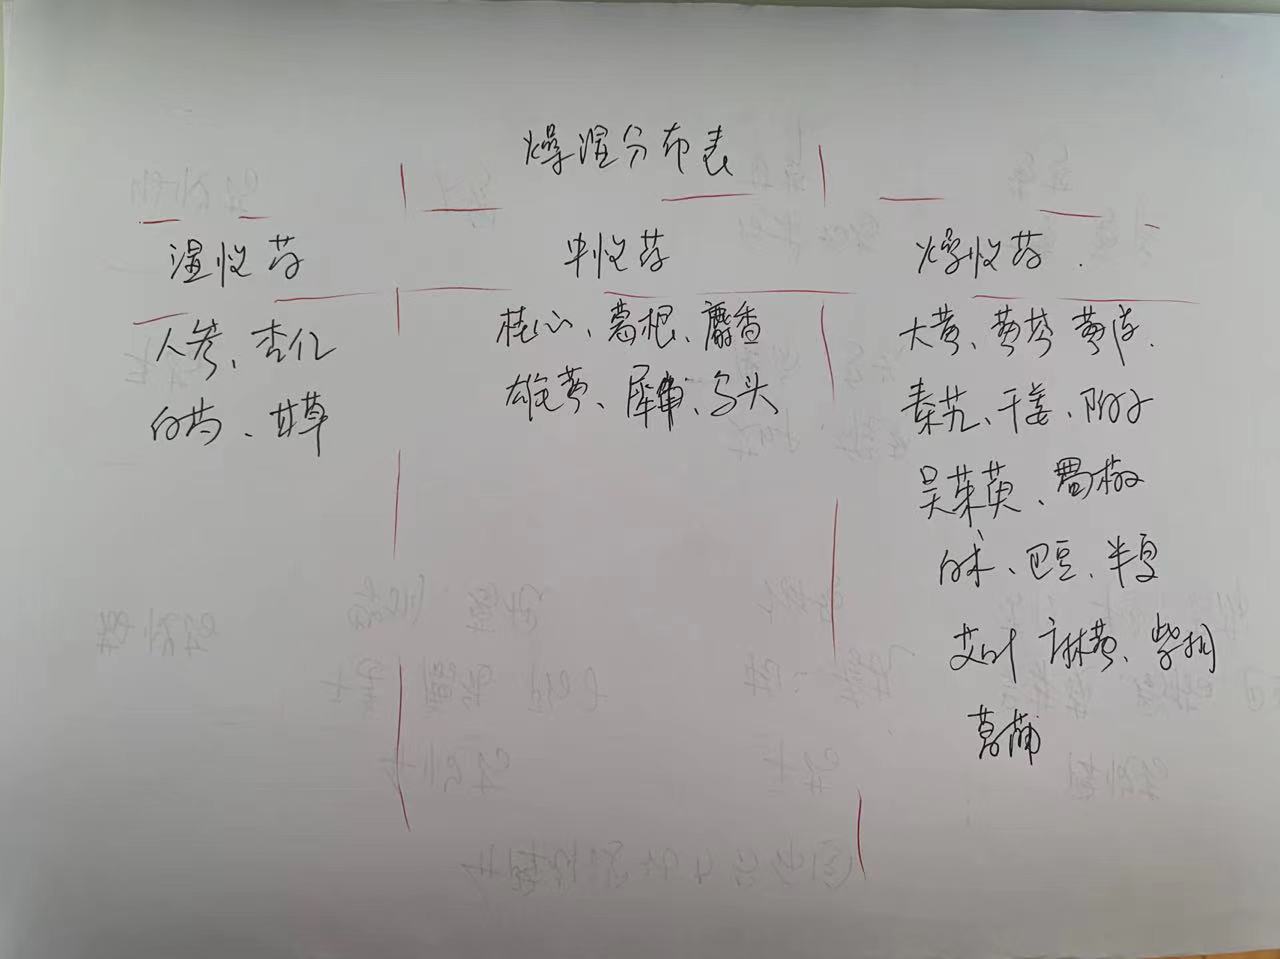 燥湿分布表
湿性药
人参、杏仁
白芍、甘草
中性药
桂心、葛根、麝香
雄黄、犀角、乌头
燥性药
大黄、黄芩 黄连、
秦艽、干姜、附子
吴茱萸、蜀椒
白术、巴豆、半夏
艾叶 麻黄、柴胡
菖蒲